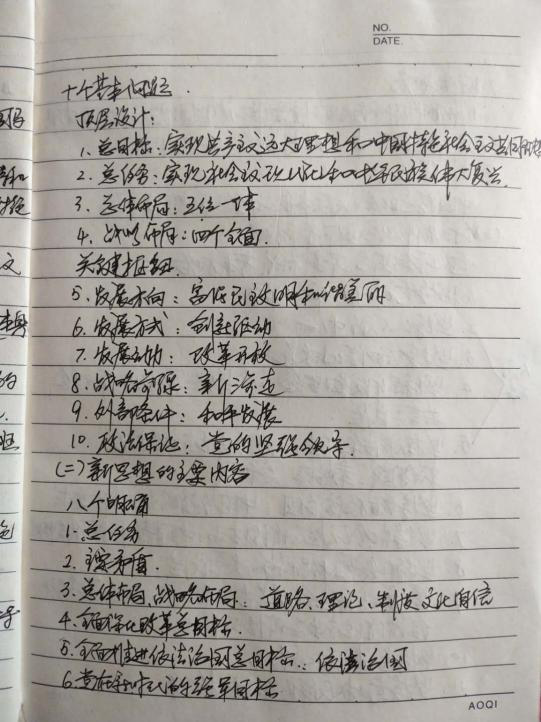 NO.
DATE.
十个基本问题.
顶层设计:
1. 总目标: 实现共产主义远大理想和中国特色社会主义共同理想
2. 总任务: 实现社会主义现代化和中华民族伟大复兴.
3. 总体布局: 五位一体
4. 战略布局: 四个全面.
关键枢纽.
5. 发展方向: 富强民主文明和谐美丽
6. 发展方式: 创新驱动
7. 发展动力: 改革开放
8. 战略
9. 外部条件: 和平发展
10. 政治保证: 党的坚强领导.
(二) 新思想的主要内容
八个明确
1. 总任务
2. 主要矛盾.
3. 总体布局、战略布局: 道路、理论、制度文化自信
4. 全面深化改革总目标.
5. 全面推进依法治国总目标: 依法治国
6. 党在新时代的强军目标
AOQI